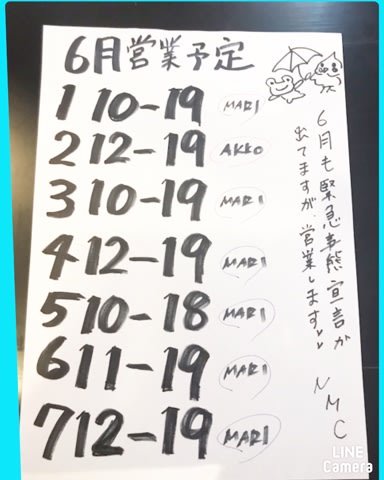 6月営業予定
1 10-19 MARI
2 12-19 AKKO
3 10-19 MARI
4 12-19 MARI
5 10-18 MARI
6 11-19 MARI
7 12-19 MARI
6月も緊急事態宣言が
出てますが、営業します♡♡
NMC
LINE
Camera